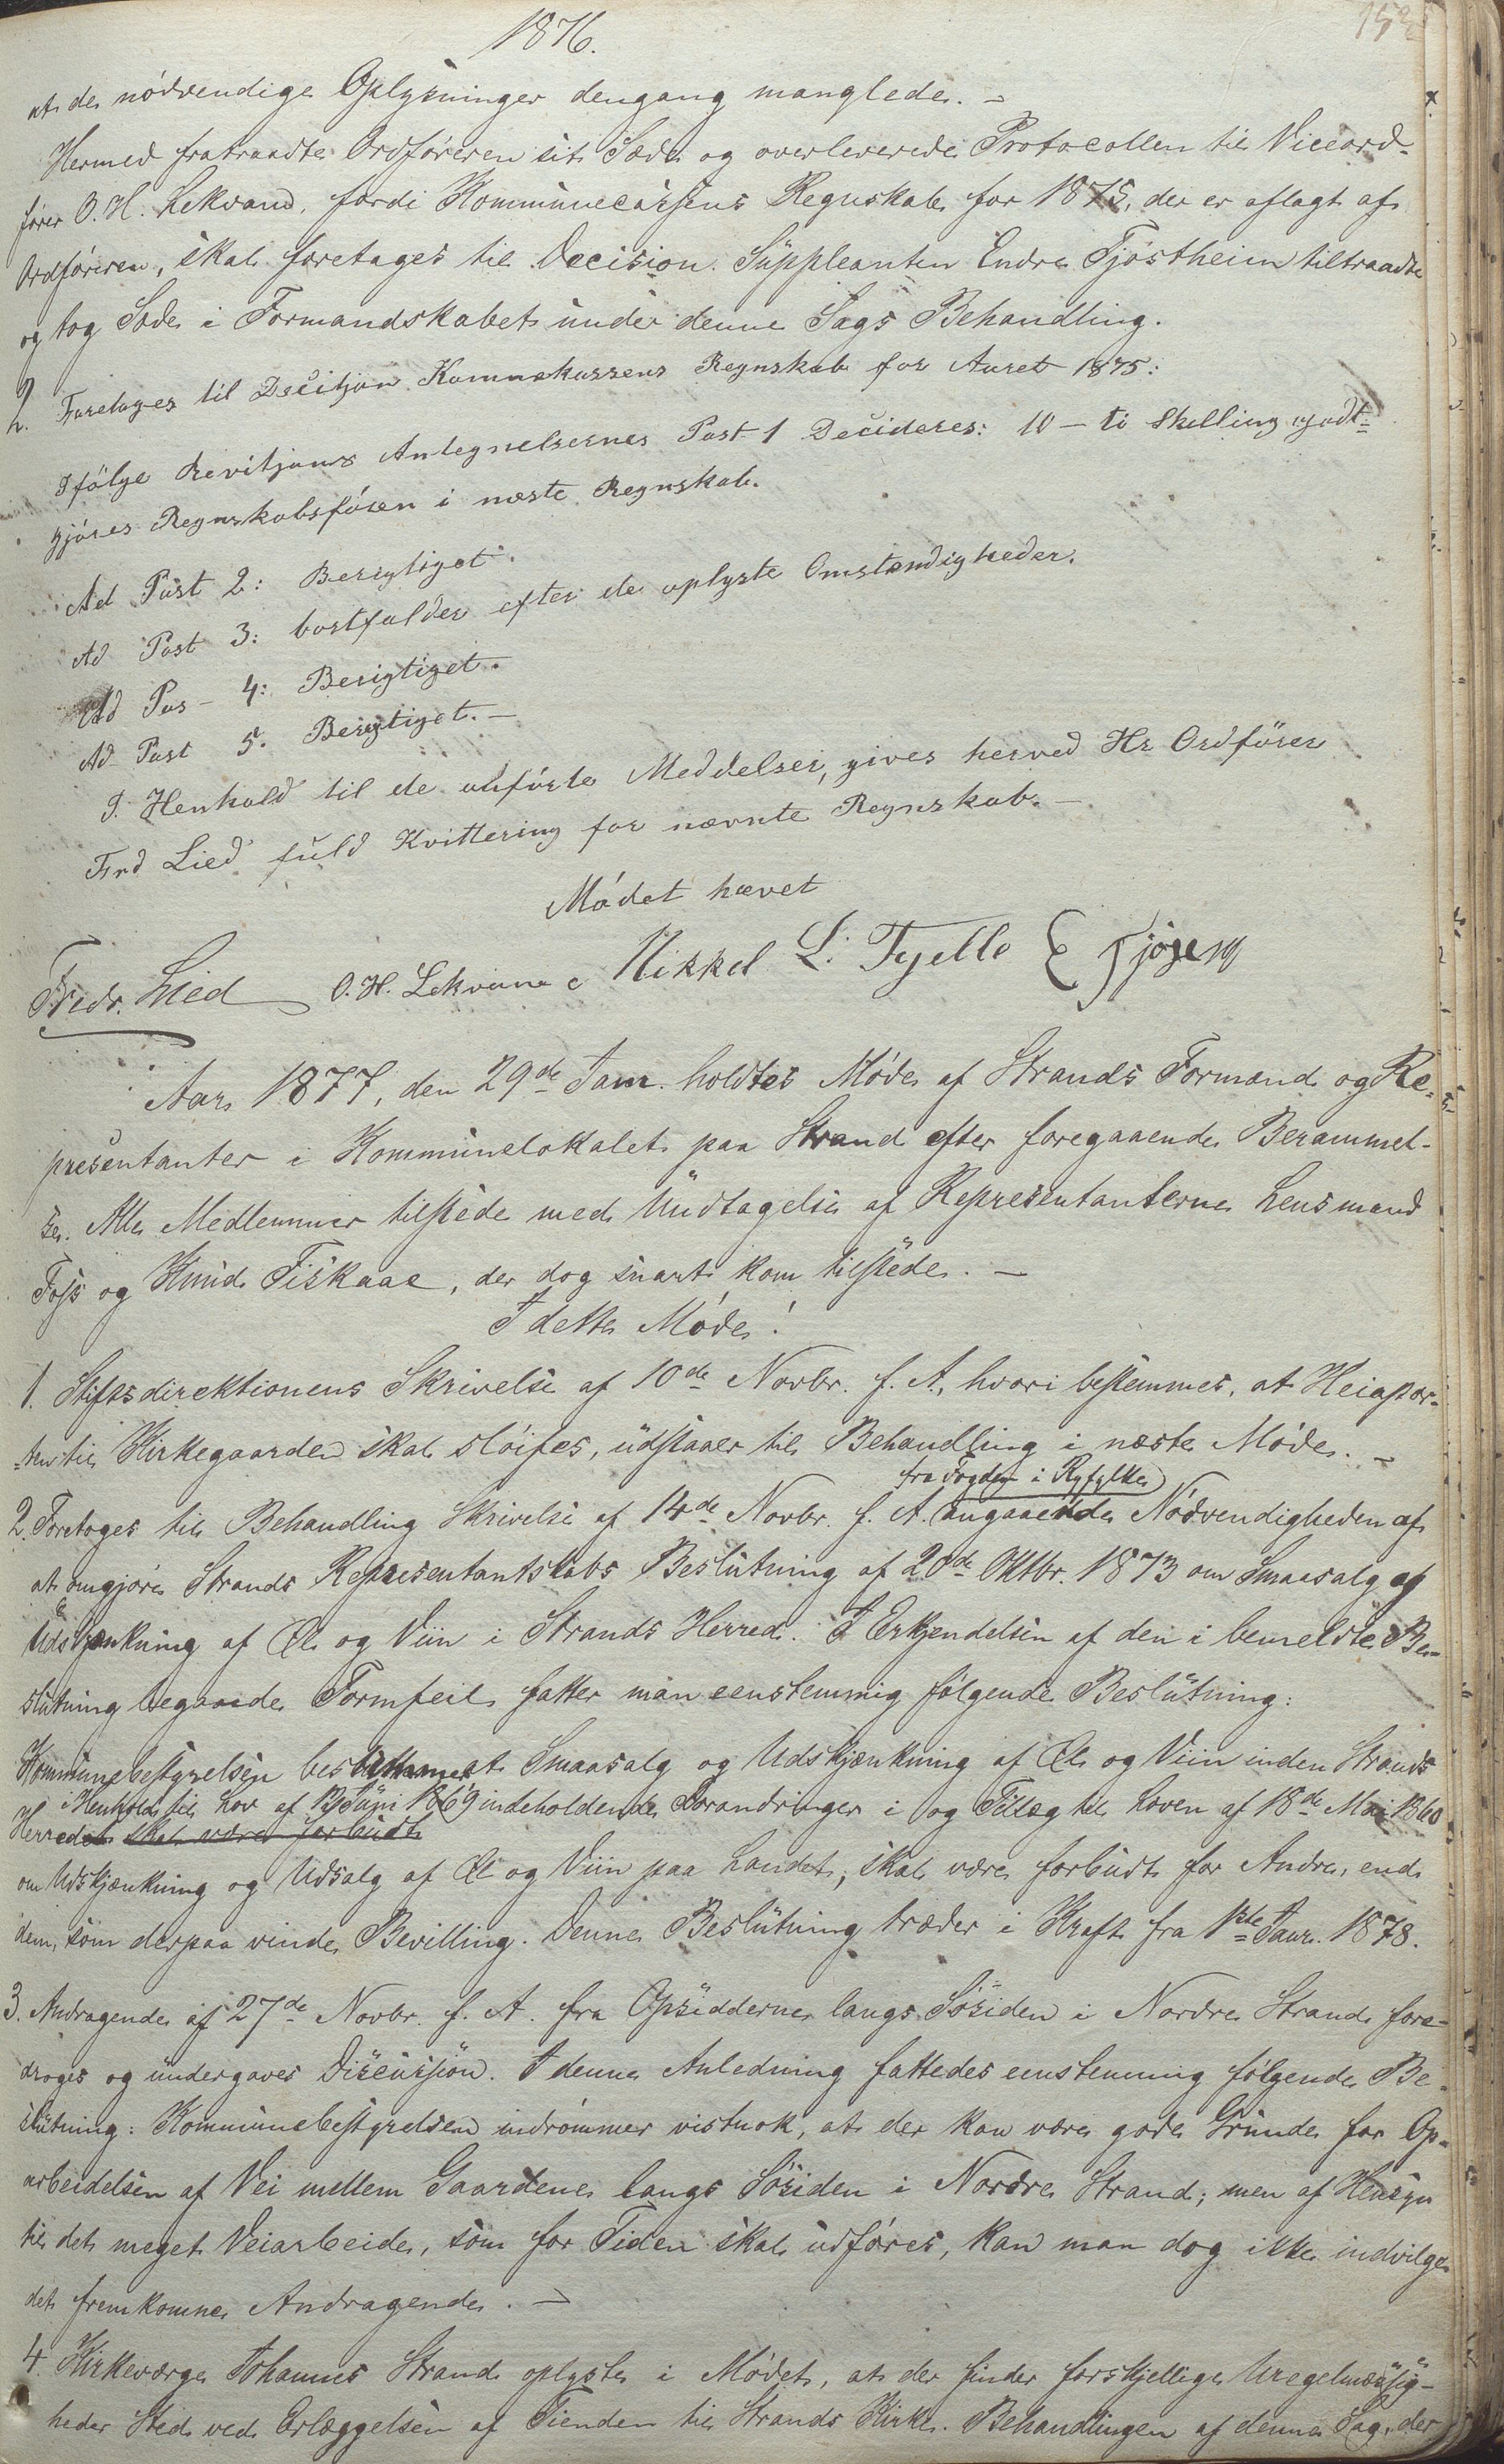 1876.
at de nödvendige Oplysninger dengang manglede. –
Hermed fratraadte Ordføreren sit Sæde og overleverede Protocollen til Viceord-
fører O. H. Lekvam, fordi Kommunecassens Regnskab for 1875, der er aflagt af
Ordføreren, skal foretages til Decision. Suppleanten Endre Tjøstheim tiltraadte
og tog Sæde i Formandskabet under denne Sags Behandling.
2. Foretoges til Decitjon Komnekassens Regnskab for Aaret 1875:
Ifölge Revitjons Antegnelsernes Post 1 Decideres: 10 – ti Skelling godt-
gjöres Regnskabsfören i næste Regnskab.
Ad Post 2: Berigtiget.
Ad Post 3: bortfalder efter de oplyste Omstændigheder.
Ad Pos – 4: Berigtiget.
Ad Post 5. Berigtiget. –
I Henhold til de anförte Meddelser, gives herved Hr Ordförer
Frd Lied fuld Kvittering for nævnte Regnskab. –
Mödet hævet
Fredr. Lied O. H. Lekvam Mikkel L. Tjelle
Aar 1877, den 29de Janr. holdtes Möde af Strands Formænd og Re-
presentanter i Kommunelokalet paa Strand efter foregaaende Berammel-
se. Alle Medlemmer tilstede med Undtagelse af Representanterne Lensmand
Foss og Knud Fiskaae, der dog snart kom tilstede. –
I dette Möde:
1. Stiftsdirektionens Skrivelse af 10de Novbr. f. A., hvori bestemmes, at Heiapor-
ten til Kirkegaarden skal slöifes, udstaaer til Behandling i næste Möde. –
fra Fogden i Ryfylke
2. Foretoges til Behandling Skrivelse af 14de Novbr. f. A. angaaende Nödvendigheden af
at omgjöre Strands Representantskabs Beslutning af 20de Oktbr. 1873 om Smaasalg og
Udskjænkning af Øl og Viin i Strands Herred. I Erkjendelsen af den i bemeldte Be-
slutning begaaede Formfeil fatter man eenstemmig fölgende Beslutning:
Kommunebestyrelsen bestemmer at Smaasalg og Udskjænkning af Øl og Viin inden Strands
i Henhold til Lov af Juni 1869 indeholdende Forandringer i og Tillæg til Loven af 18de Mai 1860
Herred skal være forbudt
om Udskjænkning og Udsalg af Øl og Viin paa Landet, skal være forbudt for Andre, end
dem, som derpaa vinde Bevilling. Denne Beslutning træder i Kraft fra 1ste Janr. 1878.
3. Andragende af 27de Novbr. f. A. fra Opsidderne langs Sösiden i Nordre Strand fore-
droges og undergaves Discussjon. I denne Anledning fattedes eenstemmig fölgende Be-
slutning: Kommunebestyrelsen indrömmer vistnok, at der kan være gode Grunde for Op-
arbeidelsen af Vei mellem Gaardene langs Sösiden i Nordre Strand; men af Hensyn
til det meget Veiarbeide, som for Tiden skal udföres, kan man dog ikke indvilge
det fremkomne Andragende. –
4. Kirkeværge Johannes Strand oplyste i Mödet, at der finder forskjellige Uregelmæssig-
heder Sted ved Erlæggelsen af Tienden til Strands Kirke. Behandlingen af denne Sag, der